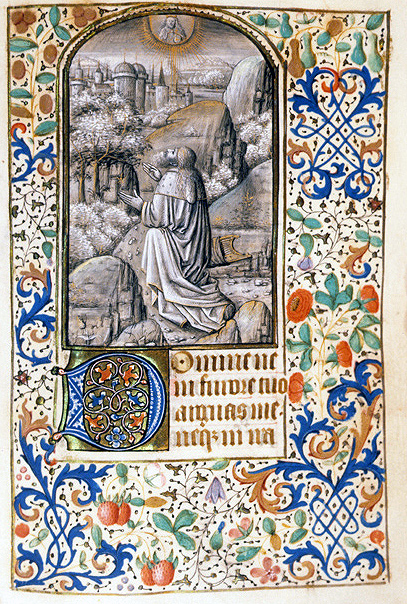 Domine ne
in furore tuo
arguas me
neqꝫ in ira